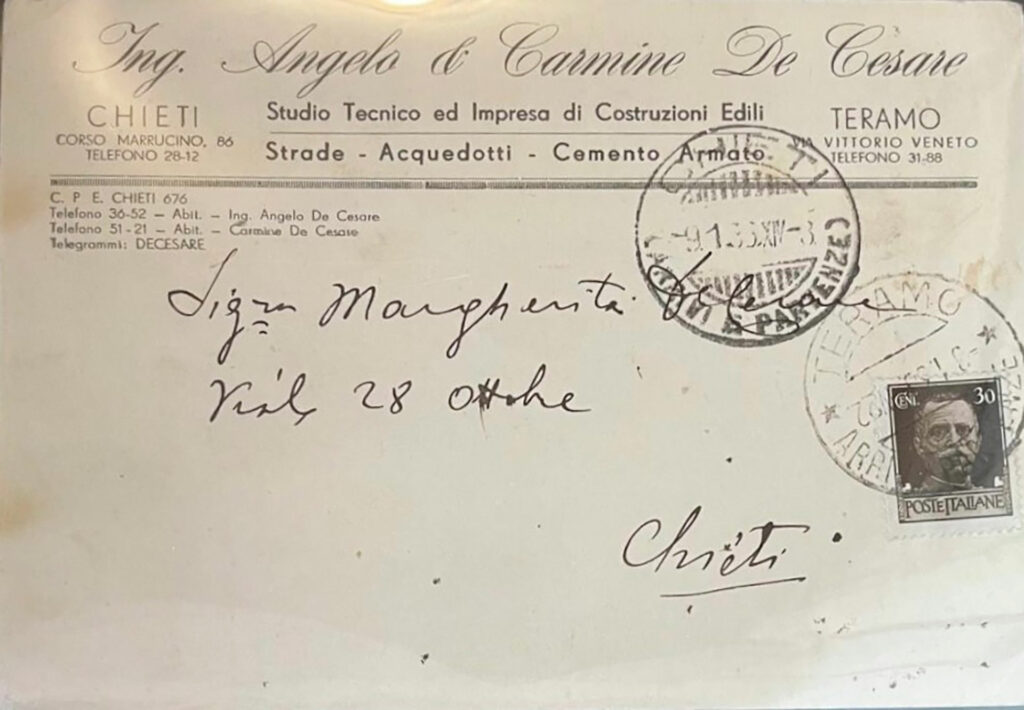 Ing. Angelo & Carmine De Cesare
CHIETI
CORSO MARRUCINO, 86
TELEFONO 28-12
Studio Tecnico ed Impresa di Costruzioni Edili
Strade - Acquedotti - Cemento Armato
TERAMO
VIA VITTORIO VENETO
TELEFONO 31-88
C. P. E. CHIETI 676
Telefono 36-52 — Abit. — Ing. Angelo De Cesare
Telefono 51-21 — Abit. — Carmine De Cesare
Telegrammi: DECESARE
CHIETI
PARTENZE)
Sigra Margherita De Cesare
Viale 28 Ottobre
Chieti
TERAMO
CENT. 30
POSTE ITALIANE